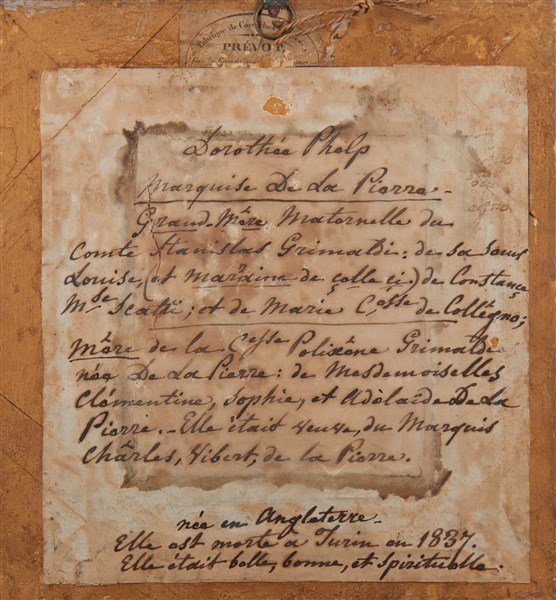 Fabrique de
PRÉVOT
Dorothée Phelp
Marquise De La Pierre -
Grand-Mère Maternelle du
Comte Stanislas Grimaldi: de sa sœur
Louise, et (marraine de celle ci) de Constance,
M.se Scati; et de Marie C.esse de Collégno;
Mère de la C.esse Polixène Grimaldi
née De La Pierre: de Mesdemoiselles
Clémentine, Sophie, et Adèlaïde De La
Pierre. - Elle était veuve, du Marquis
Chârles, Vibert, de la Pierre.
née en Angleterre -
Elle est morte à Turin en 1837.
Elle était belle, bonne, et Spirituelle.